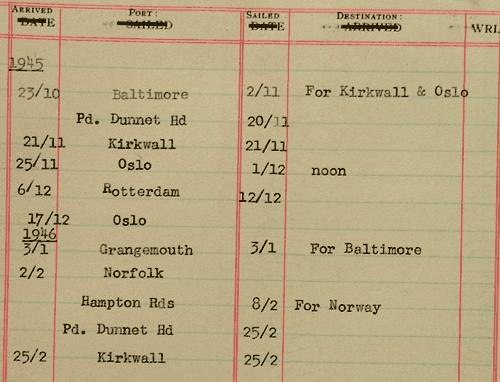 ARRIVED PORT: SAILED DESTINATION:
DATE SAILED DATE ARRIVED WRI
1945
23/10 Baltimore 2/11 For Kirkwall & Oslo
Pd. Dunnet Hd 20/11
21/11 Kirkwall 21/11
25/11 Oslo 1/12 noon
6/12 Rotterdam 12/12
17/12 Oslo
1946
3/1 Grangemouth 3/1 For Baltimore
2/2 Norfolk
Hampton Rds 8/2 For Norway
Pd. Dunnet Hd 25/2
25/2 Kirkwall 25/2